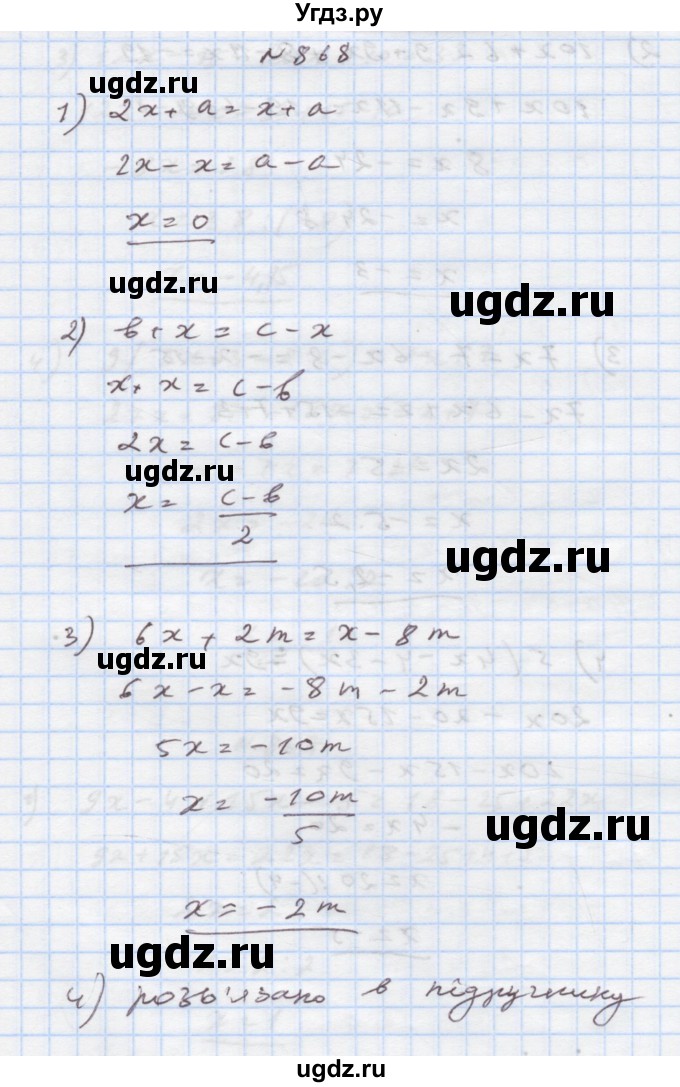 Угдз.ру
№868
ugdz.ru
1) 2x + a = x + a
2x - x = a - a
x = 0
ugdz.ru
ugdz.ru
2) b + x = c - x
x + x = c - b
2x = c - b
ugdz.ru
x = (c - b)/2
ugdz.ru
3) 6x + 2m = x - 8m
ugdz.ru
6x - x = -8m - 2m
5x = -10m
x = -10m/5
ugdz.ru
x = -2m
ugdz.ru
4) розв'язано в підручнику
ugdz.ru